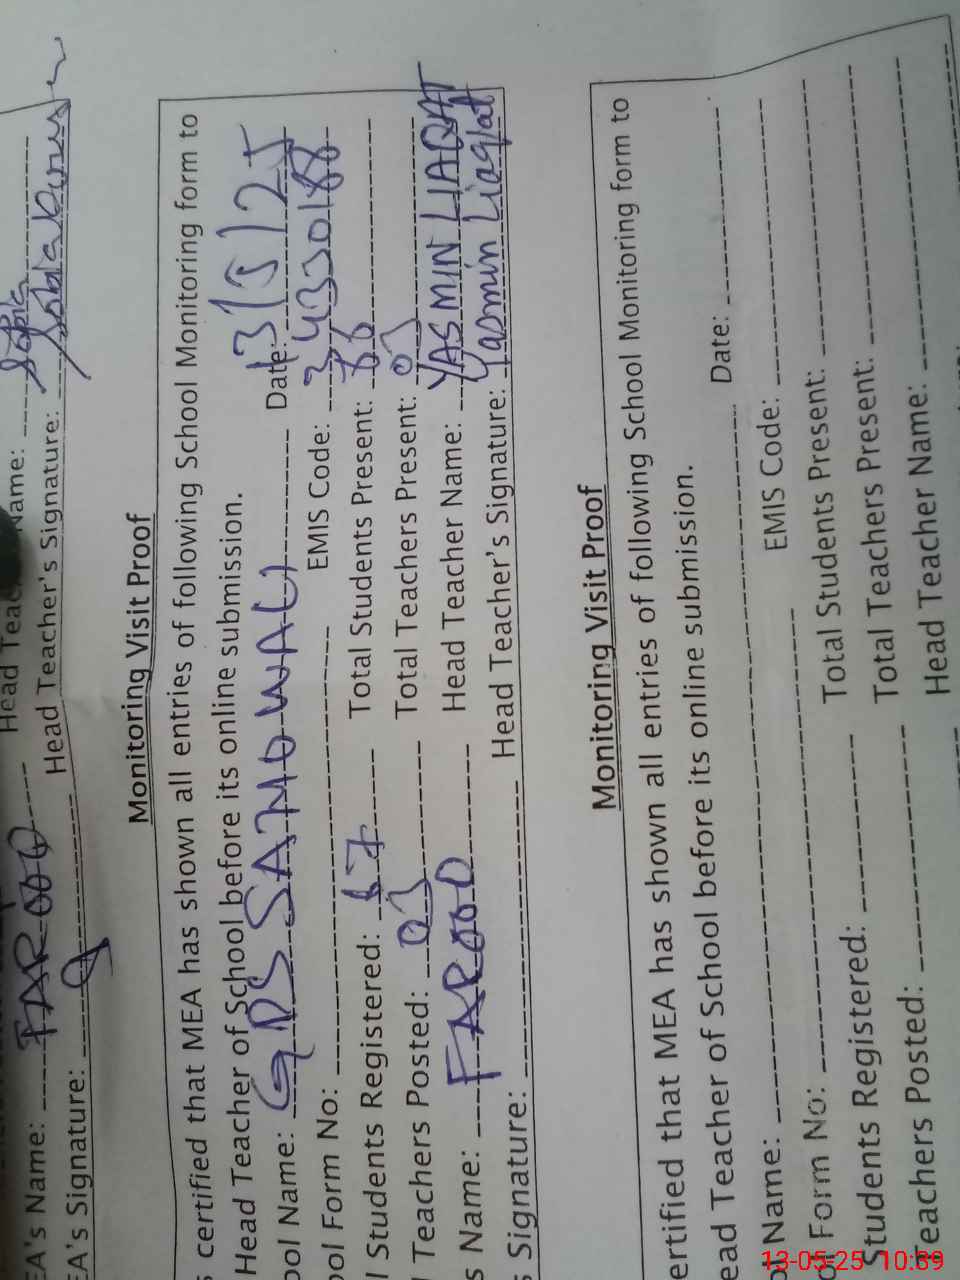 Name:
Head Teac
EA's Name: FAROOQ
Head Teacher's Signature:
EA's Signature:
Monitoring Visit Proof
certified that MEA has shown all entries of following School Monitoring form to
Head Teacher of School before its online submission.
ool Name: GPS SAMOWALI Date: 13/5/25
ool Form No: EMIS Code: 34330188
l Students Registered: 87 Total Students Present: 86
l Teachers Posted: 03 Total Teachers Present: 03
s Name: FAROOQ Head Teacher Name: YASMIN LIAQAT
s Signature: Head Teacher's Signature: Yasmin Liaqat
Monitoring Visit Proof
ertified that MEA has shown all entries of following School Monitoring form to
ead Teacher of School before its online submission.
ol Name: Date:
ol Form No: EMIS Code:
Students Registered: Total Students Present:
Teachers Posted: Total Teachers Present:
Head Teacher Name:
13-05-25 10:39